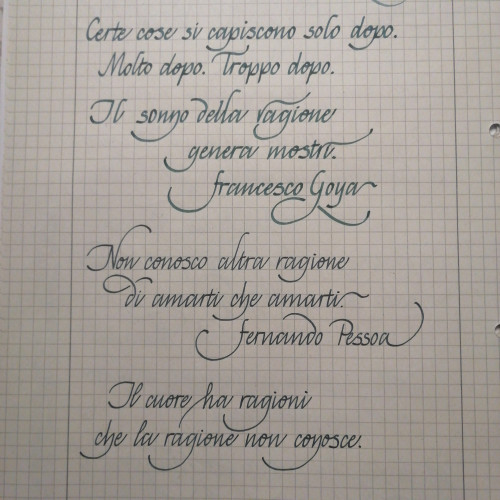 Certe cose si capiscono solo dopo.
Molto dopo. Troppo dopo.
Il sonno della ragione
genera mostri.
francesco Goya
Non conosco altra ragione
di amarti che amarti.
fernando Pessoa
Il cuore ha ragioni
che la ragione non conosce.